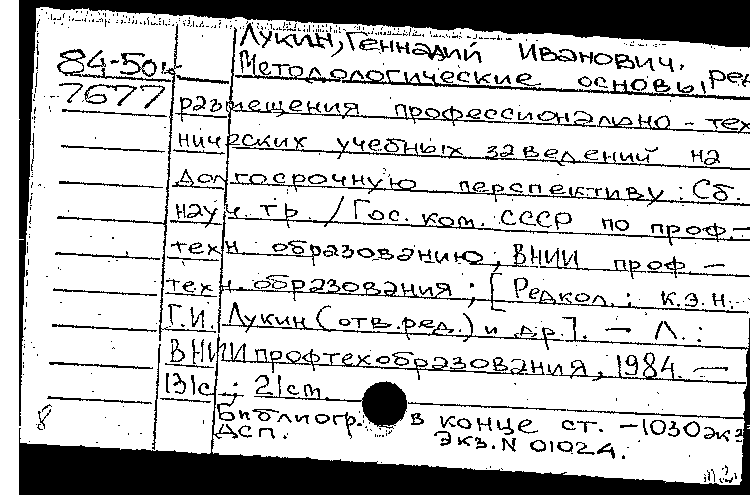 Лукин, Геннадий Иванович, ред
84-50к
Методологические основы
7677
размещения профессионально-тех
нических учебных заведений на
долгосрочную перспективу: Сб.
науч. тр. / Гос. ком. СССР по проф.-
техн. образованию; ВНИИ проф.-
техн. образования; [Редкол.: к.э.н.
Г.И. Лукин (отв. ред.) и др.]. - Л.:
ВНИИпрофтехобразования, 1984. -
131с.; 21см.
Библиогр. в конце ст. - 1030экз
ДСП. Экз. N 01024.
8